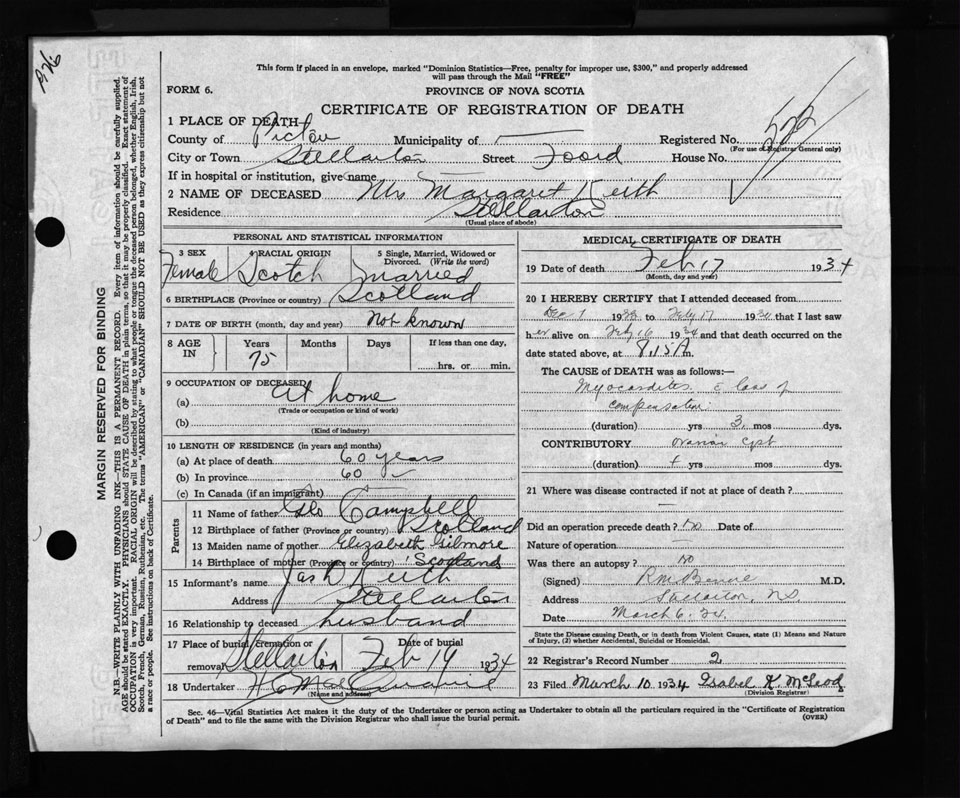 This form if placed in an envelope, marked "Dominion Statistics—Free, penalty for improper use, $300," and properly addressed
will pass through the Mail "FREE"
FORM 6.
PROVINCE OF NOVA SCOTIA
CERTIFICATE OF REGISTRATION OF DEATH
1 PLACE OF DEATH
County of Pictou Municipality of — Registered No.
(For use of Registrar General only)
City or Town Stellarton Street Foord House No.
If in hospital or institution, give name
2 NAME OF DECEASED Mrs Margaret Keith
Residence Stellarton
(Usual place of abode)
PERSONAL AND STATISTICAL INFORMATION
3 SEX Female
4 RACIAL ORIGIN Scotch
5 Single, Married, Widowed or Divorced. (Write the word) Married
6 BIRTHPLACE (Province or country) Scotland
7 DATE OF BIRTH (month, day and year) Not known
8 AGE IN Years 75 Months Days If less than one day, hrs. or min.
9 OCCUPATION OF DECEASED
(a) At home
(Trade or occupation or kind of work)
(b)
(Kind of industry)
10 LENGTH OF RESIDENCE (in years and months)
(a) At place of death 60 years
(b) In province 60
(c) In Canada (if an immigrant)
Parents
11 Name of father Geo Campbell
12 Birthplace of father (Province or country) Scotland
13 Maiden name of mother Elizabeth Gilmore
14 Birthplace of mother (Province or country) Scotland
15 Informant's name Jas D Keith
Address Stellarton
16 Relationship to deceased husband
17 Place of burial, cremation or removal Stellarton Date of burial Feb 19 1934
18 Undertaker
(Name and address)
MEDICAL CERTIFICATE OF DEATH
19 Date of death Feb 17 1934
(Month, day and year)
20 I HEREBY CERTIFY that I attended deceased from
Dec 1 193 to Feby 17 1934 that I last saw
her alive on Feby 16 1934 and that death occurred on
date stated above, at 8.15 A m.
The CAUSE of DEATH was as follows:—
Myocarditis c loss of
compensation.
(duration) yrs 3 mos dys.
CONTRIBUTORY ovarian cyst
(duration) yrs mos dys.
21 Where was disease contracted if not at place of death?
—
Did an operation precede death? No Date of
Nature of operation —
Was there an autopsy? No
(Signed) M.D.
Address Stellarton, NS
Date March 6. 34.
State the Disease causing Death, or in death from Violent Causes, state (1) Means and Nature
of Injury, (2) whether Accidental, Suicidal or Homicidal.
22 Registrar's Record Number 2
23 Filed March 10 1934 Isabel K. McLeod
(Division Registrar)
Sec. 46—Vital Statistics Act makes it the duty of the Undertaker or person acting as Undertaker to obtain all the particulars required in the "Certificate of Registration
of Death" and to file the same with the Division Registrar who shall issue the burial permit.
(OVER)
MARGIN RESERVED FOR BINDING
N.B.—WRITE PLAINLY WITH UNFADING INK—THIS IS A PERMANENT RECORD. Every item of information should be carefully supplied.
AGE should be stated EXACTLY. PHYSICIANS should STATE CAUSE OF DEATH in plain terms, so that it may be properly classified. Exact statement of
OCCUPATION is very important. RACIAL ORIGIN will be described by stating to what people or tongue the deceased person belonged, whether English, Irish,
Scotch, French, German, Russian, Ruthenian, etc. The terms "AMERICAN" or "CANADIAN" SHOULD NOT BE USED as they express citizenship but not
a race or people. See instructions on back of Certificate.